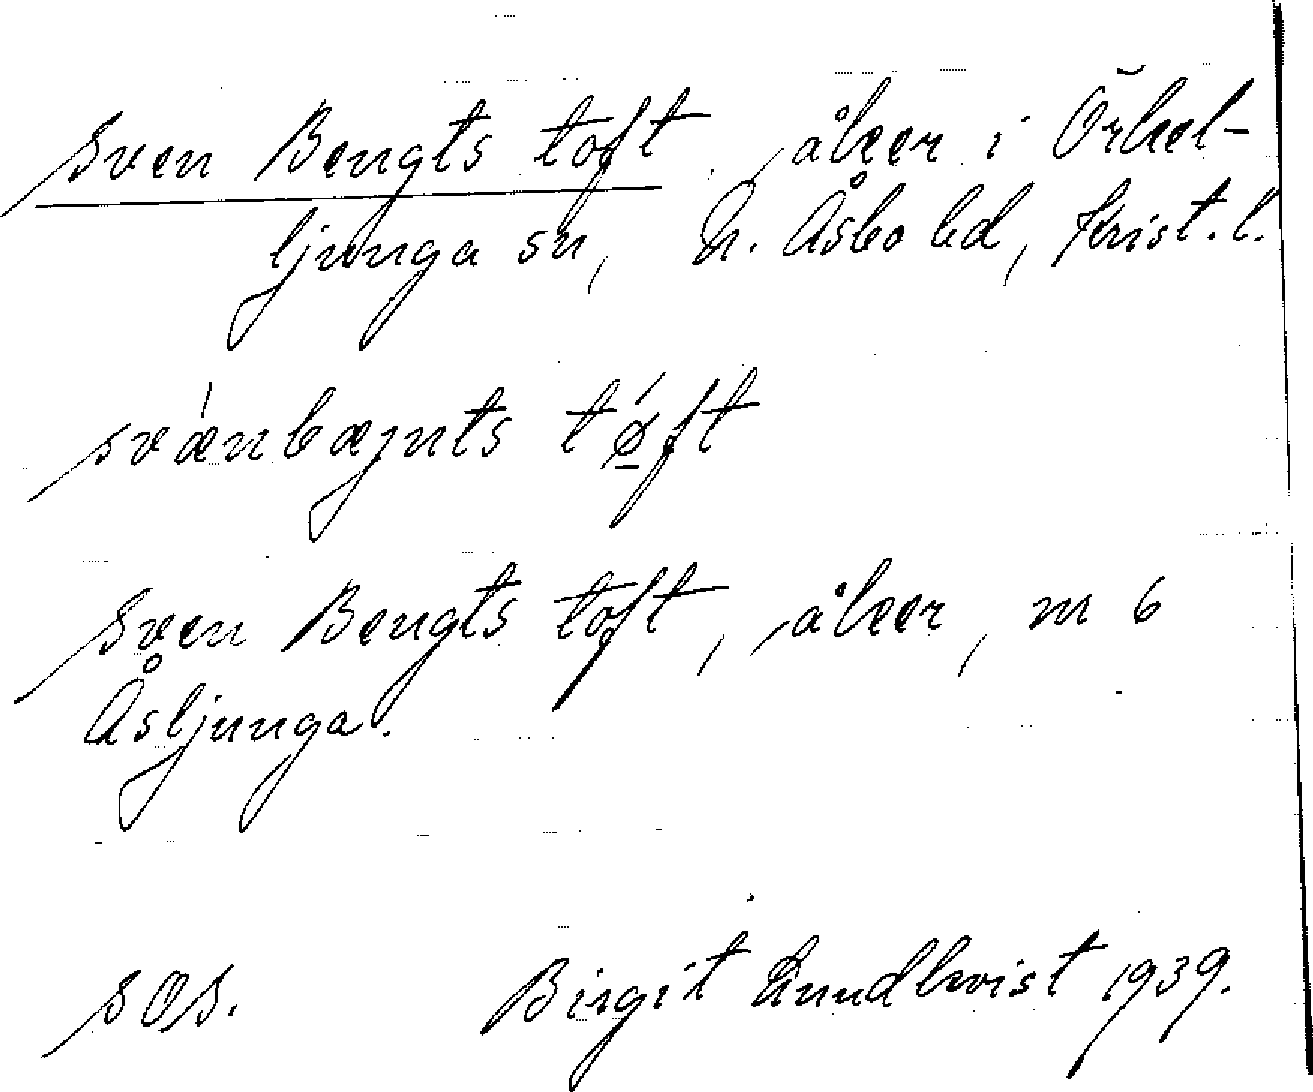 Sven Bengts toft, åker i Örkel-
ljunga sn, N. Åsbo hd, Krist. l.
svǽnbæjnts tǿft
Sven Bengts toft, åker, m 6
Åsljunga.
SOS. Birgit Lundkvist 1939.